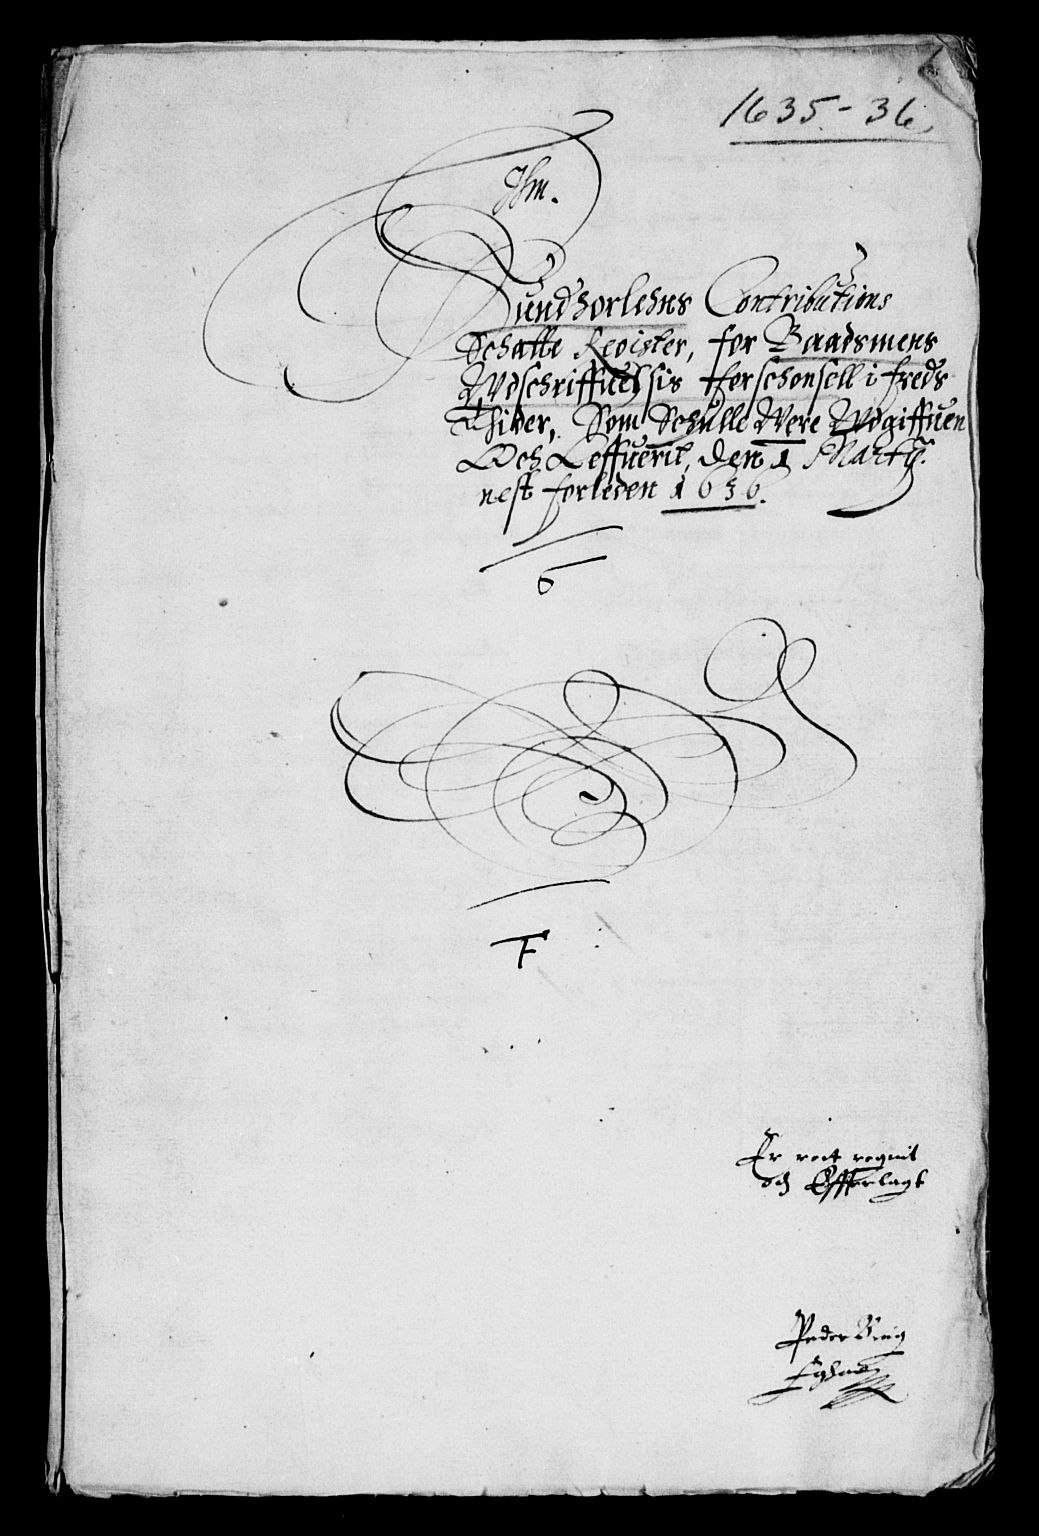 1635-36
Jhm.
Sundhorlehns Contributions
Schatte Register, for Baadsmens
Wdschriffuelssis therschonsell i freds
Thider, Som Schulle Were Wdgiffuen
Och Leffuerit, den 1 Martij
nest forleden 1636.
6
F
Er rect regnit
och Offuerlagt
Peder